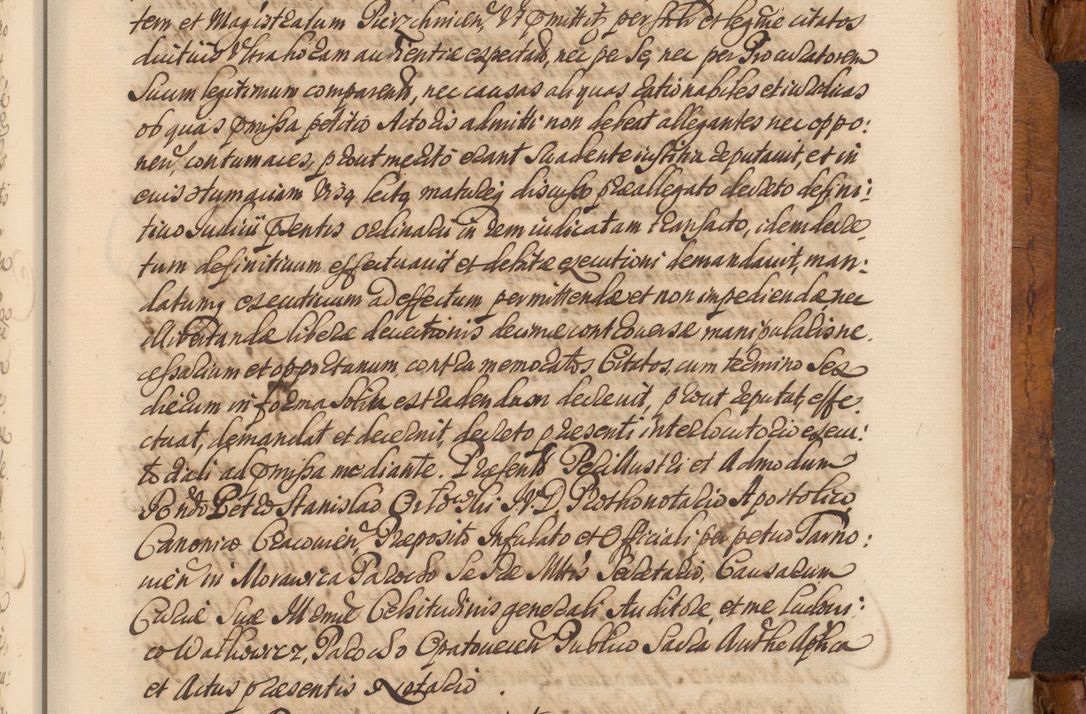 tem et Magistratum Pierzchnicen, Ut pmittit, per fati et legme citatos
diutius Ultra horam audientiæ expectati, nec per Se, nec per Procuratorem
Suum legitimum comparendi, nec causas aliquas rationabiles et iuridicas
ob quas pmissa petitio Actoris admitti non debeat allegantes nec oppo:
nen, contumaces, prout merito erant Suadente iustitia reputavit, et in
eius otumquiam Usq huq maturiq discusso præallegato decreto defini:
tivo Judicii pntis ordinarii in rem iudicatam transacto, idem decre
tum definitivum effectuavit et debitæ executioni demandavit, man:
datumq executivum ad effectum permittendæ et non impediendæ nec
libertandæ liberæ devectionis decimæ controversæ manipularis ne.
cessarium et opportunum, contra memoratos Citatos, cum termino Sex
dierum in forma Solita extradendum decrevit, prout reputat, effe
ctuat, demandat et decernit, decreto præsenti interlocutorio execu:
toriali ad pmissa mediante. Præsente Perillustri et Admodum
Rndo Petro Stanislao Orłowski J. V. D. Prothonotario Apostolico,
Canonico Cracovien, Præposito Infulato et Officiali perpetuo Tarno:
vien in Morawica Parocho Sæ Ræ Mtis Secretario, Causarum
Curiæ Suæ Illmæ Celsitudinis generali Auditore, et me Ludovi:
co Walkowicz, Parocho Opatovicen Publico Sacra Autthe Aplica
et Actus præsentis Notario.